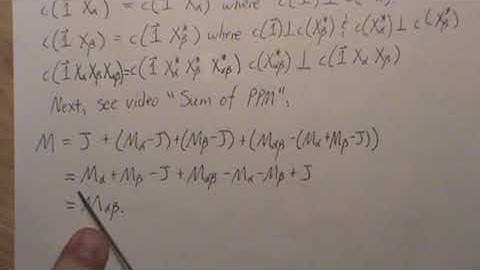 c(1⃗ Xα) = c(1⃗ Xα*) where c(1⃗)⊥c(Xα*)
c(1⃗ Xβ) = c(1⃗ Xβ*) where c(1⃗)⊥c(Xβ*) & c(Xα*)⊥c(Xβ*)
c(1⃗ XαXβXαβ)=c(1⃗ Xα* Xβ* Xαβ*) c(Xαβ*)⊥c(1⃗ Xα Xβ)
Next, see video "Sum of PPM",
M = J + (Mα-J)+(Mβ-J)+(Mαβ-(Mα+Mβ-J))
= Mα+Mβ-J+Mαβ-Mα-Mβ+J
= Mαβ.